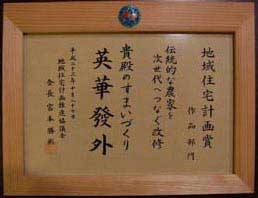 地域住宅計画賞
作品部門
伝統的な農家を
次世代へつなぐ改修
貴殿のすまいづくり
英華發外
平成二十三年十月二十七日
地域住宅計画推進協議会
会長 宮本勝彬